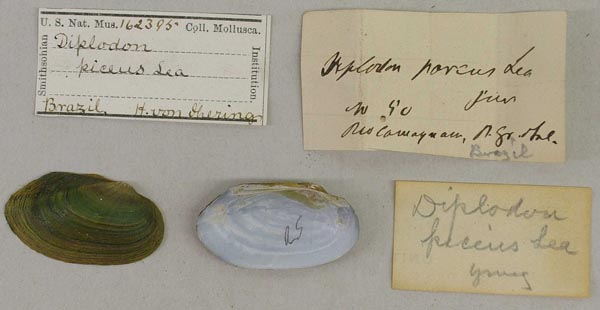 U. S. Nat. Mus. 162395. Coll. Mollusca.
Smithsonian
Institution
Diplodon
piceus Lea
Brazil. H. von Ihering
Diplodon Lea
juv
No 50
Rio R. Gr. Sul.
Brazil
Diplodon
piceus Lea
young